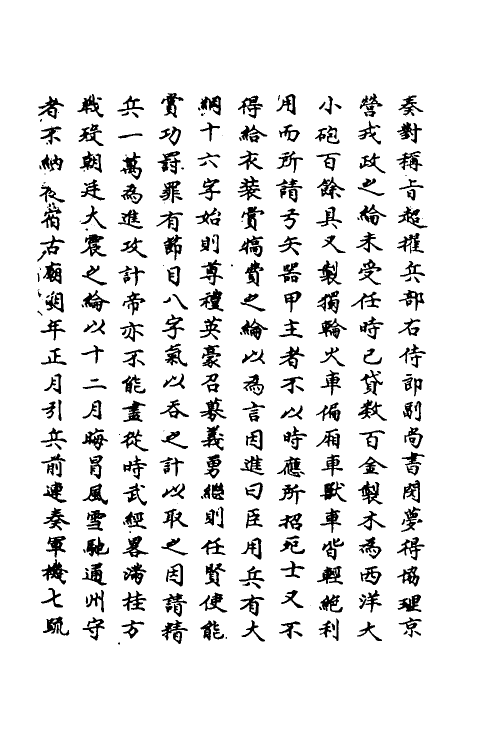 奏對稱旨超擢兵部右侍郎副尚書閔夢得協理京
營戎政之綸未受任時已貸数百金製木為西洋大
小砲百餘具又製獨輪火車偏廂車獸車皆輕絶利
用而所請弓矢器甲主者不以時應所招死士又不
得給衣装賞犒費之綸以為言因進曰臣用兵有大
綱十六字始則尊禮英豪召募義勇繼則任賢使能
賞功罸罪有節目八字氣以吞之計以取之因請精
兵一萬為進攻計帝亦不能盡從時武經畧滿桂方
戰殁朝廷大震之綸以十二月晦冒風雪馳通州守
者不納夜宿古廟朔年正月引兵前連奏軍機七疏